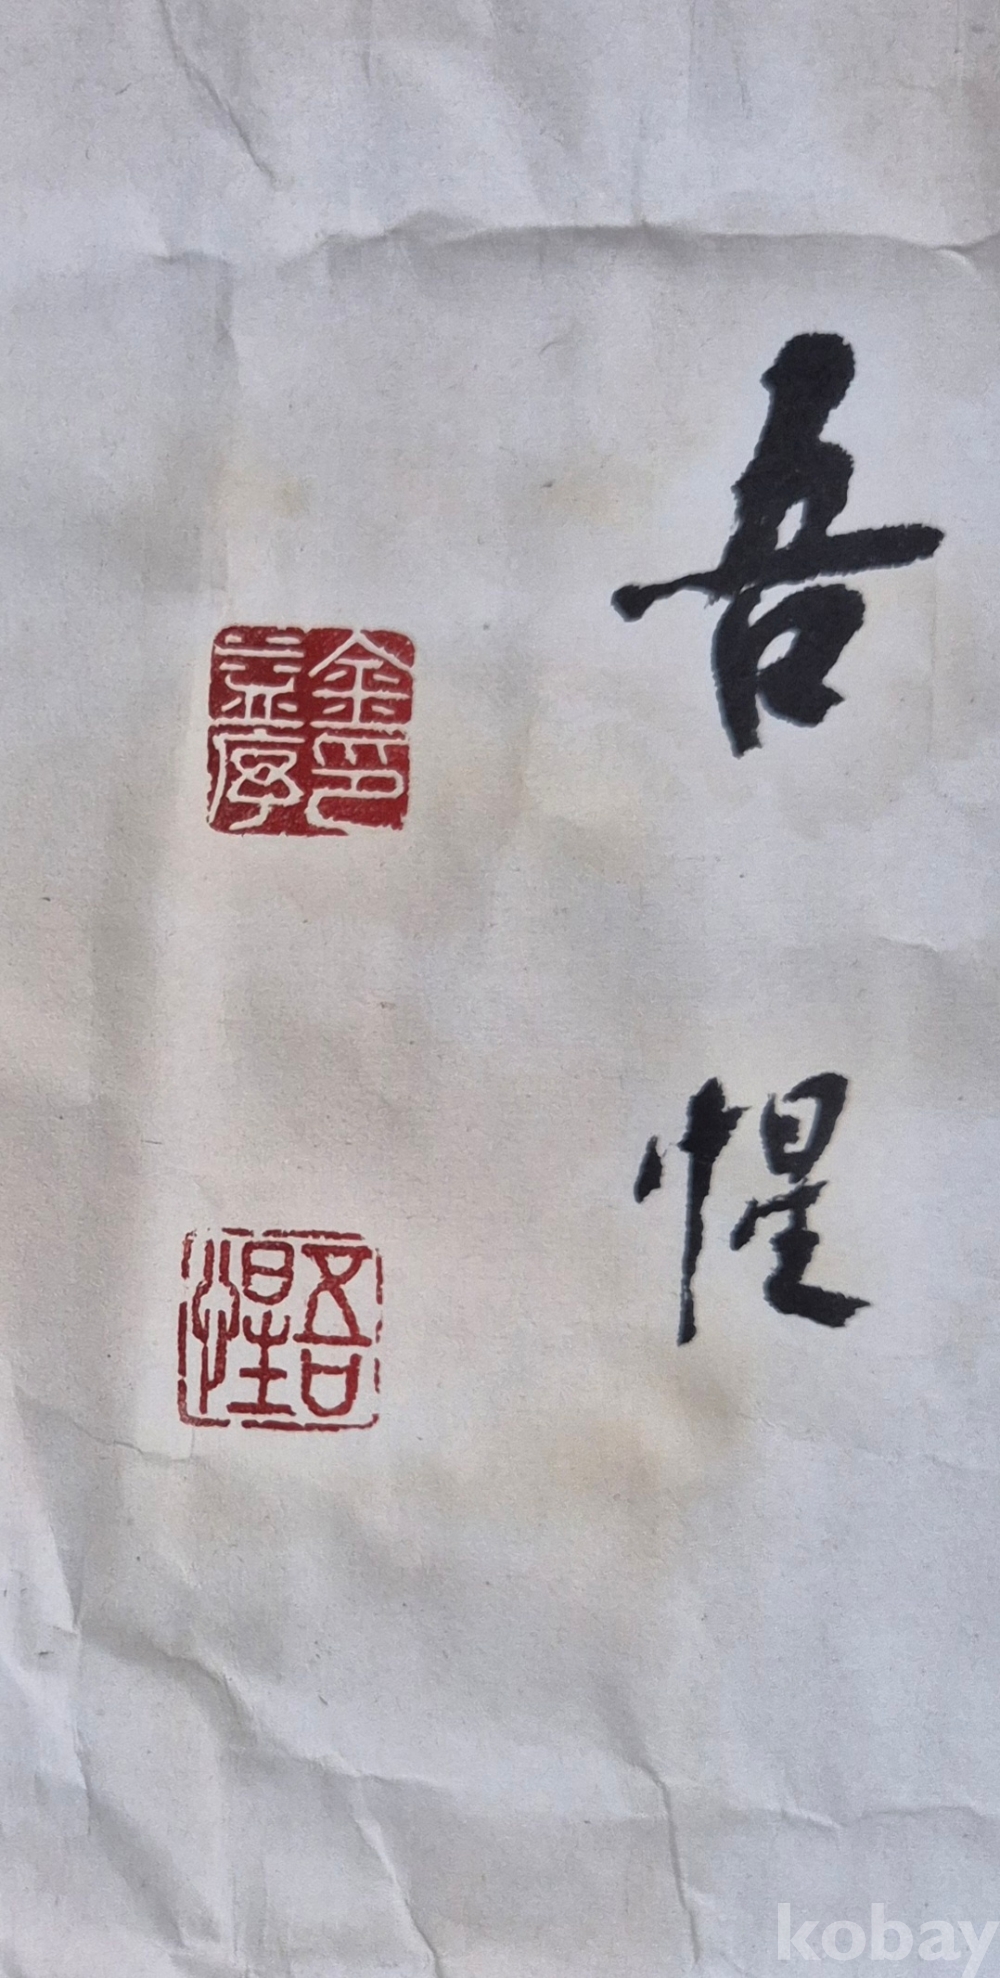 吾惺
金印
吾惺
kobay